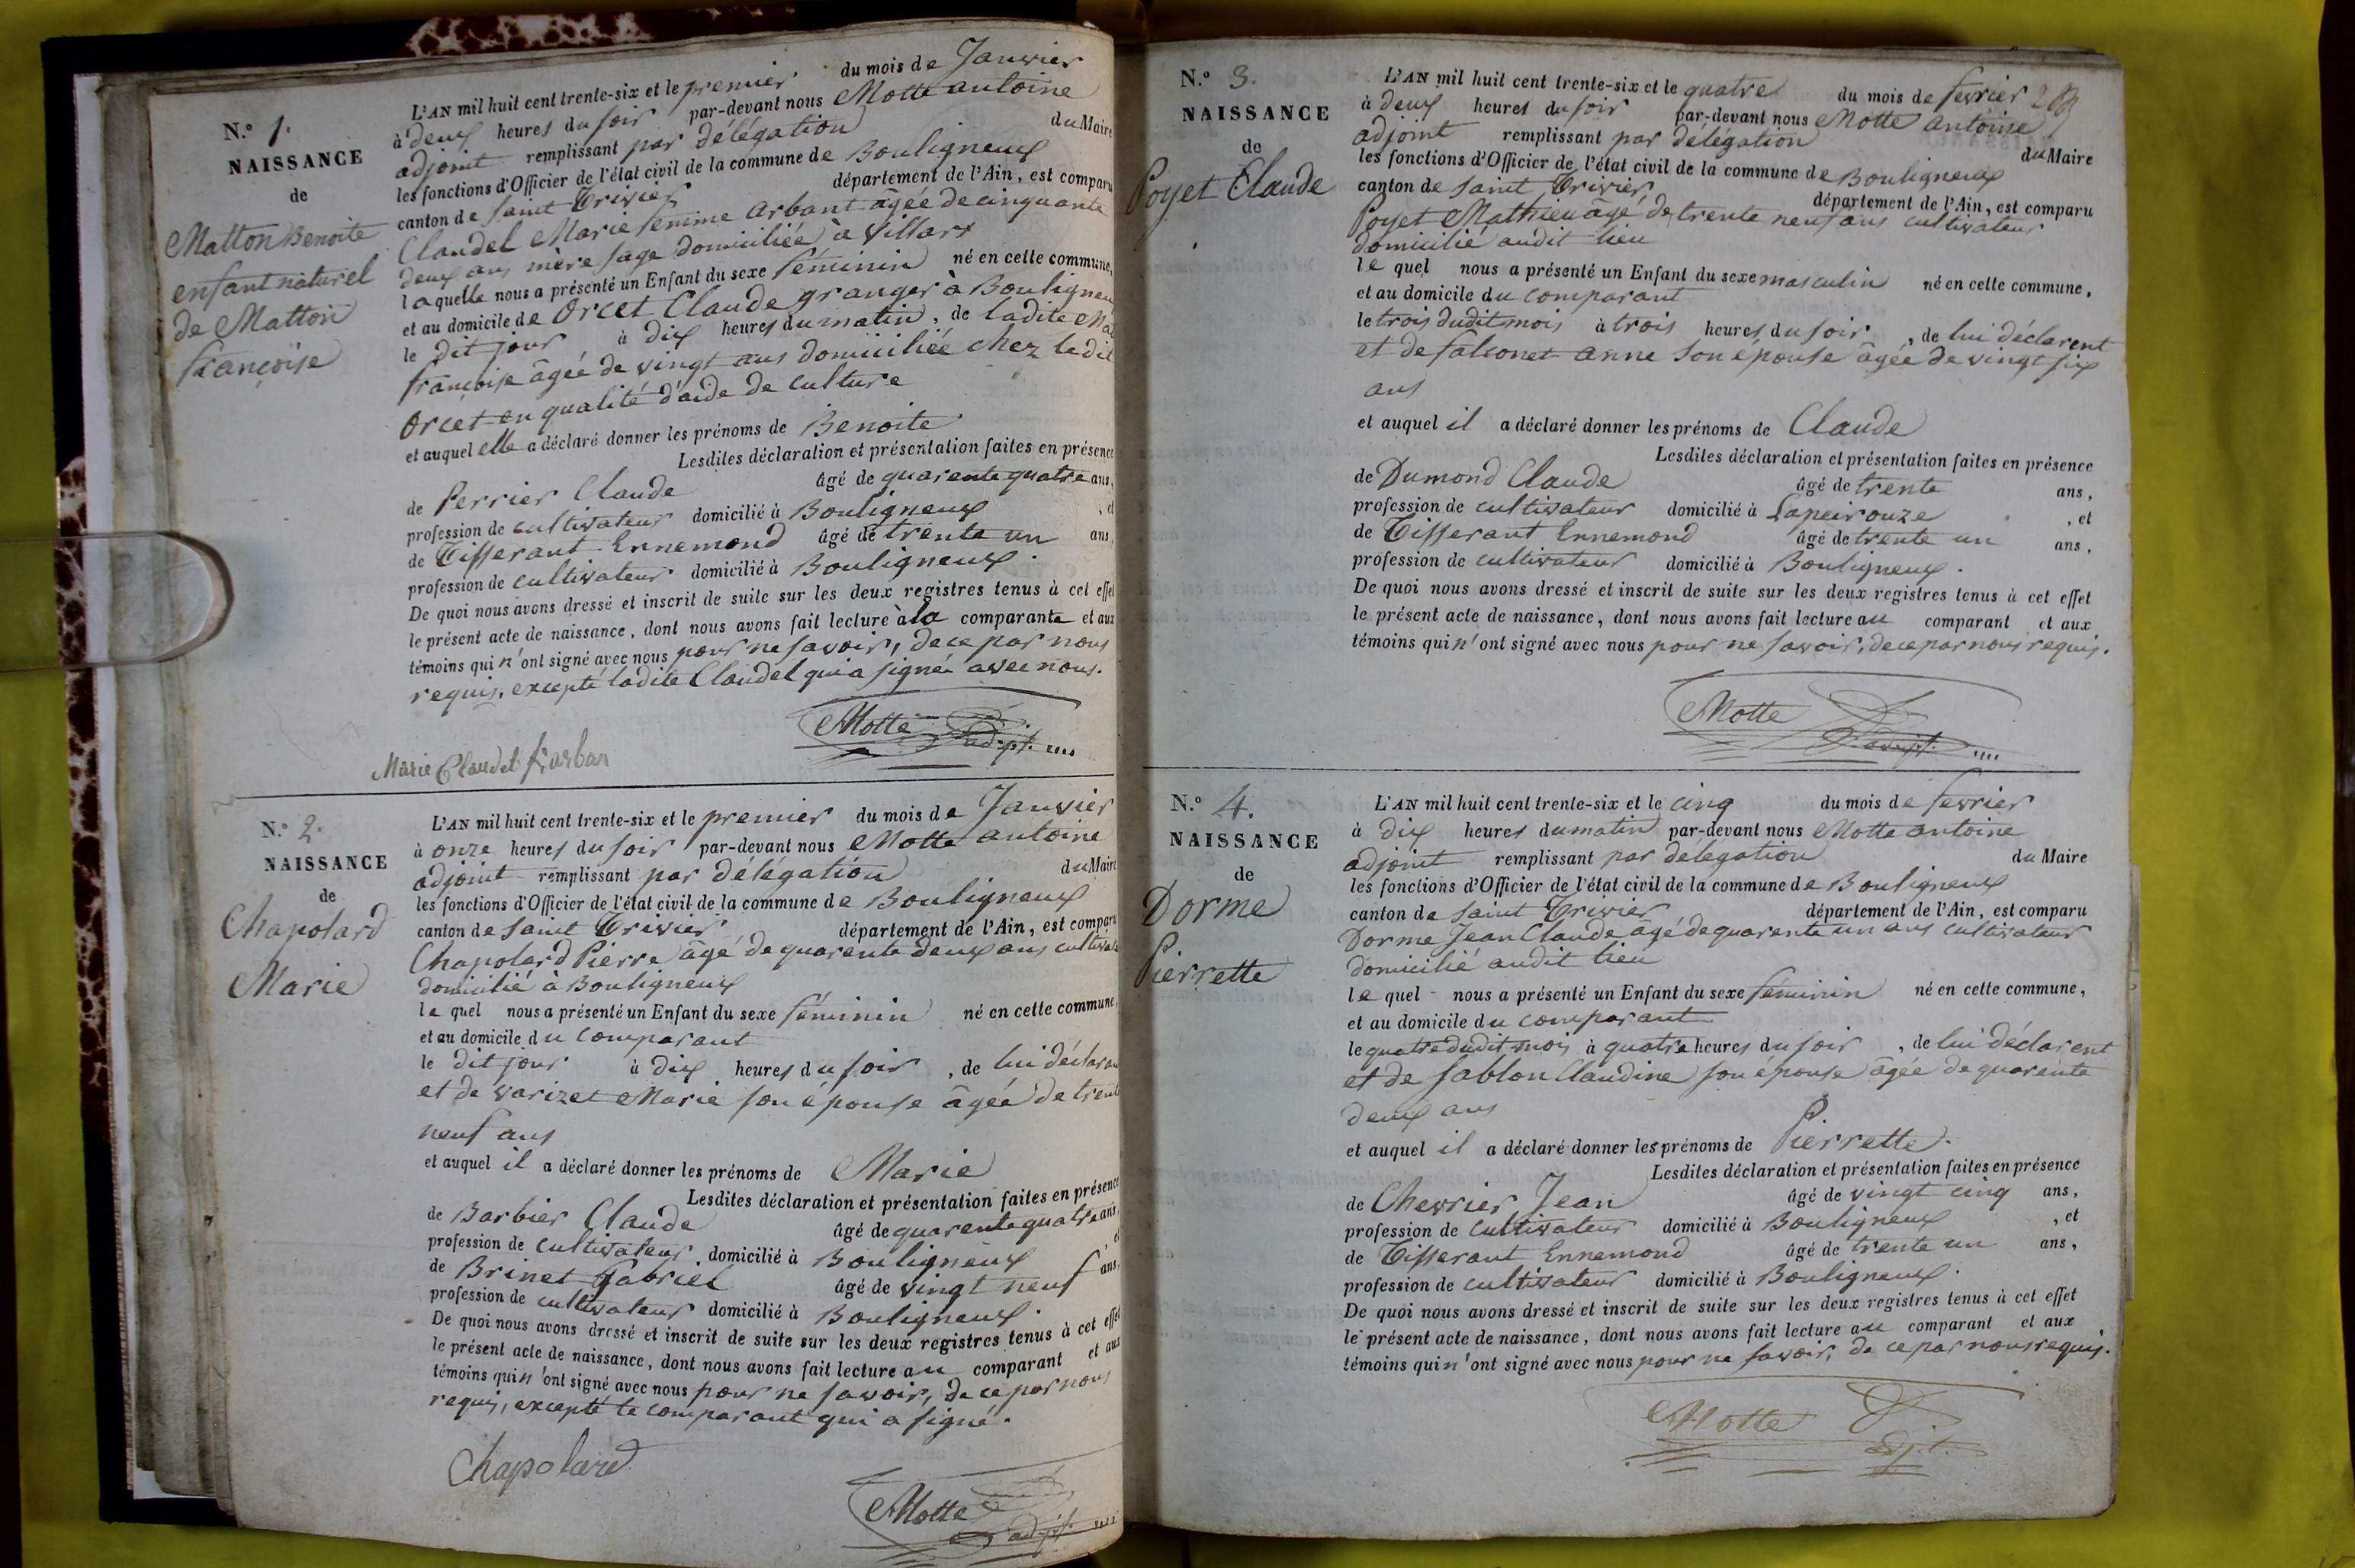 N.º 1.
NAISSANCE
de
Matton Benoite
enfant naturel
de Matton
françoise
L'AN mil huit cent trente-six et le premier du mois de Janvier
à deux heures du soir par-devant nous Motte antoine
adjoint remplissant par délégation du Maire
les fonctions d'Officier de l'état civil de la commune de Bouligneux
canton de Saint Trivier département de l'Ain, est comparu
Claudel Marie femme Arbant agée de cinquante
deux ans mère sage domiciliée à Villars
laquelle nous a présenté un Enfant du sexe féminin né en cette commune,
et au domicile de Orcet Claude granger à Bouligneu
le dit jour à dix heures du matin, de ladite Ma
françoise âgée de vingt ans domiciliée chez le dit
Orcet en qualité d'aide de culture
et auquel elle a déclaré donner les prénoms de Benoite
Lesdites déclaration et présentation faites en présence
de Perrier Claude âgé de quarente quatre ans,
profession de cultivateur domicilié à Bouligneux, et
de Tisserant Ennemond âgé de trente un ans,
profession de cultivateur domicilié à Bouligneux.
De quoi nous avons dressé et inscrit de suite sur les deux registres tenus à cet effet
le présent acte de naissance, dont nous avons fait lecture à la comparante et aux
témoins qui n'ont signé avec nous pour ne savoir, de ce par nous
requis, excepté ladite Claudel qui a signé avec nous.
Motte adjt.
Marie Claudel f arban
N.º 2.
NAISSANCE
de
Chapolard
Marie
L'AN mil huit cent trente-six et le premier du mois de Janvier
à onze heures du soir par-devant nous Motte antoine
adjoint remplissant par délégation du Maire
les fonctions d'Officier de l'état civil de la commune de Bouligneux
canton de Saint Trivier département de l'Ain, est comparu
Chapolard Pierre âgé de quarente deux ans cultivate
domicilié à Bouligneux
le quel nous a présenté un Enfant du sexe féminin né en cette commune,
et au domicile du comparant
le dit jour à dix heures du soir, de lui déclaran
et de Varizet Marie son épouse âgée de trent
neuf ans
et auquel il a déclaré donner les prénoms de Marie
Lesdites déclaration et présentation faites en présence
de Barbier Claude âgé de quarente quatre ans,
profession de cultivateur domicilié à Bouligneux, et
de Brinet Gabriel âgé de vingt neuf ans,
profession de cultivateur domicilié à Bouligneux.
De quoi nous avons dressé et inscrit de suite sur les deux registres tenus à cet effet
le présent acte de naissance, dont nous avons fait lecture au comparant et aux
témoins qui n'ont signé avec nous pour ne savoir, de ce par nous
requis, excepté le comparant qui a signé.
Chapolard
Motte adjt.
N.º 3.
NAISSANCE
de
Poyet Claude
L'AN mil huit cent trente-six et le quatre du mois de fevrier
à deux heures du soir par-devant nous Motte Antoine
adjoint remplissant par délégation du Maire
les fonctions d'Officier de l'état civil de la commune de Bouligneux
canton de Saint Trivier département de l'Ain, est comparu
Poyet Mathieu âgé de trente neuf ans cultivateur
domicilié audit lieu
le quel nous a présenté un Enfant du sexe masculin né en cette commune,
et au domicile du comparant
le trois dudit mois à trois heures du soir, de lui déclarent
et de falconet anne son épouse âgée de vingt six
ans
et auquel il a déclaré donner les prénoms de Claude
Lesdites déclaration et présentation faites en présence
de Dumond Claude âgé de trente ans,
profession de cultivateur domicilié à Lapeirouze, et
de Tisserant Ennemond âgé de trente un ans,
profession de cultivateur domicilié à Bouligneux.
De quoi nous avons dressé et inscrit de suite sur les deux registres tenus à cet effet
le présent acte de naissance, dont nous avons fait lecture au comparant et aux
témoins qui n'ont signé avec nous pour ne savoir, de ce par nous requis.
Motte adjt.
N.º 4.
NAISSANCE
de
Dorme
Pierrette
L'AN mil huit cent trente-six et le cinq du mois de fevrier
à dix heures du matin par-devant nous Motte antoine
adjoint remplissant par delegation du Maire
les fonctions d'Officier de l'état civil de la commune de Bouligneux
canton de Saint Trivier département de l'Ain, est comparu
Dorme Jean Claude âgé de quarente un ans cultivateur
domicilié audit lieu
le quel nous a présenté un Enfant du sexe féminin né en cette commune,
et au domicile du comparant
le quatre dudit mois à quatre heures du soir, de lui déclarent
et de Sablon Claudine son épouse âgée de quarente
deux ans
et auquel il a déclaré donner les prénoms de Pierrette.
Lesdites déclaration et présentation faites en présence
de Chevrier Jean âgé de vingt cinq ans,
profession de cultivateur domicilié à Bouligneux, et
de Tisserant Ennemond âgé de trente un ans,
profession de cultivateur domicilié à Bouligneux.
De quoi nous avons dressé et inscrit de suite sur les deux registres tenus à cet effet
le présent acte de naissance, dont nous avons fait lecture au comparant et aux
témoins qui n'ont signé avec nous pour ne savoir, de ce par nous requis.
Motte adjt.